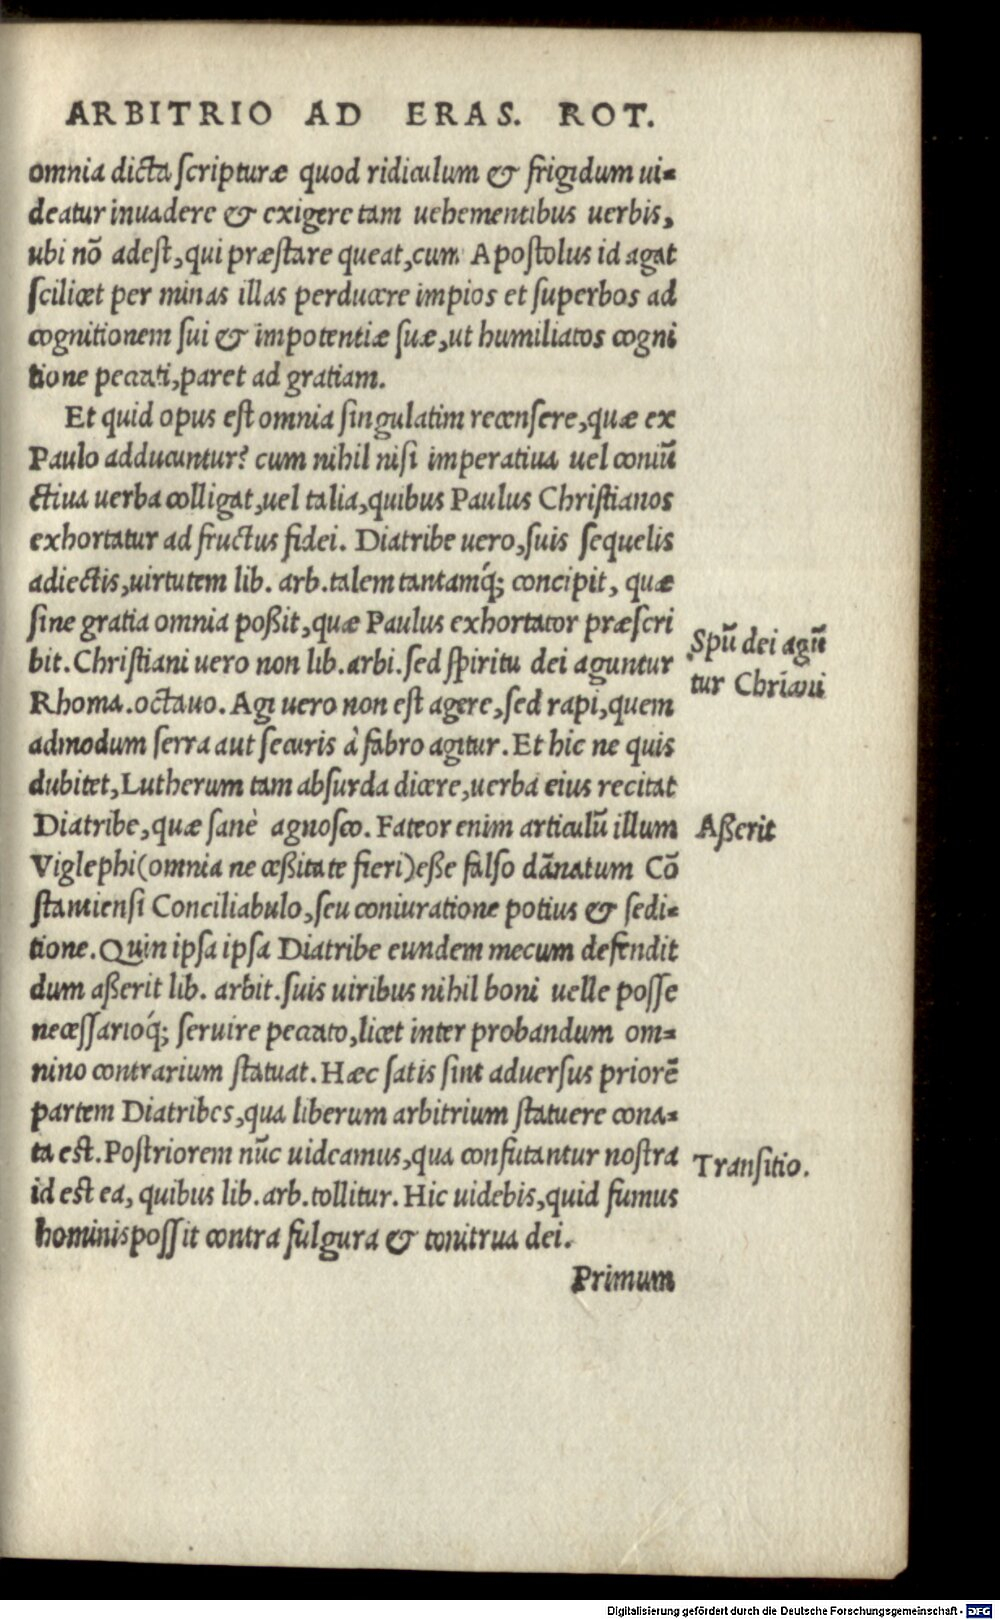 ARBITRIO AD ERAS. ROT.
omnia dicta ſcripturæ quod ridiculum & frigidum ui-
deatur inuadere & exigere tam uehementibus uerbis,
ubi nõ adeſt, qui præſtare queat, cum Apoſtolus id agat
ſcilicet per minas illas perducere impios et ſuperbos ad
cognitionem ſui & impotentiæ ſuæ, ut humiliatos cogni
tione peccati, paret ad gratiam.
Et quid opus eſt omnia ſingulatim recenſere, quæ ex
Paulo adducuntur? cum nihil niſi imperatiua uel coniũ
ctiua uerba colligat, uel talia, quibus Paulus Chriſtianos
exhortatur ad fructus fidei. Diatribe uero, ſuis ſequelis
adiectis, uirtutem lib. arb. talem tantamq́; concipit, quæ
ſine gratia omnia poßit, quæ Paulus exhortator præſcri
bit. Chriſtiani uero non lib. arbi. ſed ſpiritu dei aguntur
Rhoma. octauo. Agi uero non eſt agere, ſed rapi, quem
admodum ſerra aut ſecuris à fabro agitur. Et hic ne quis
dubitet, Lutherum tam abſurda dicere, uerba eius recitat
Diatribe, quæ ſanè agnoſco. Fateor enim articulũ illum
Viglephi (omnia neceßitate fieri) eße falſo dãnatum Cõ
ſtantienſi Conciliabulo, ſeu coniuratione potius & ſedi-
tione. Quin ipſa ipſa Diatribe eundem mecum defendit
dum aßerit lib. arbit. ſuis uiribus nihil boni uelle poſſe
neceſſarioq́; ſeruire peccato, licet inter probandum om-
nino contrarium ſtatuat. Hæc ſatis ſint aduerſus priorẽ
partem Diatribes, qua liberum arbitrium ſtatuere cona-
ta eſt. Poſtriorem nũc uideamus, qua confutantur noſtra
id est ea, quibus lib. arb. tollitur. Hic uidebis, quid fumus
hominis poſſit contra fulgura & tonitrua dei.
Primum
Spũ dei agũ
tur Chriani
Aßerit
Tranſitio.
Digitalisierung gefördert durch die Deutsche Forschungsgemeinschaft - DFG